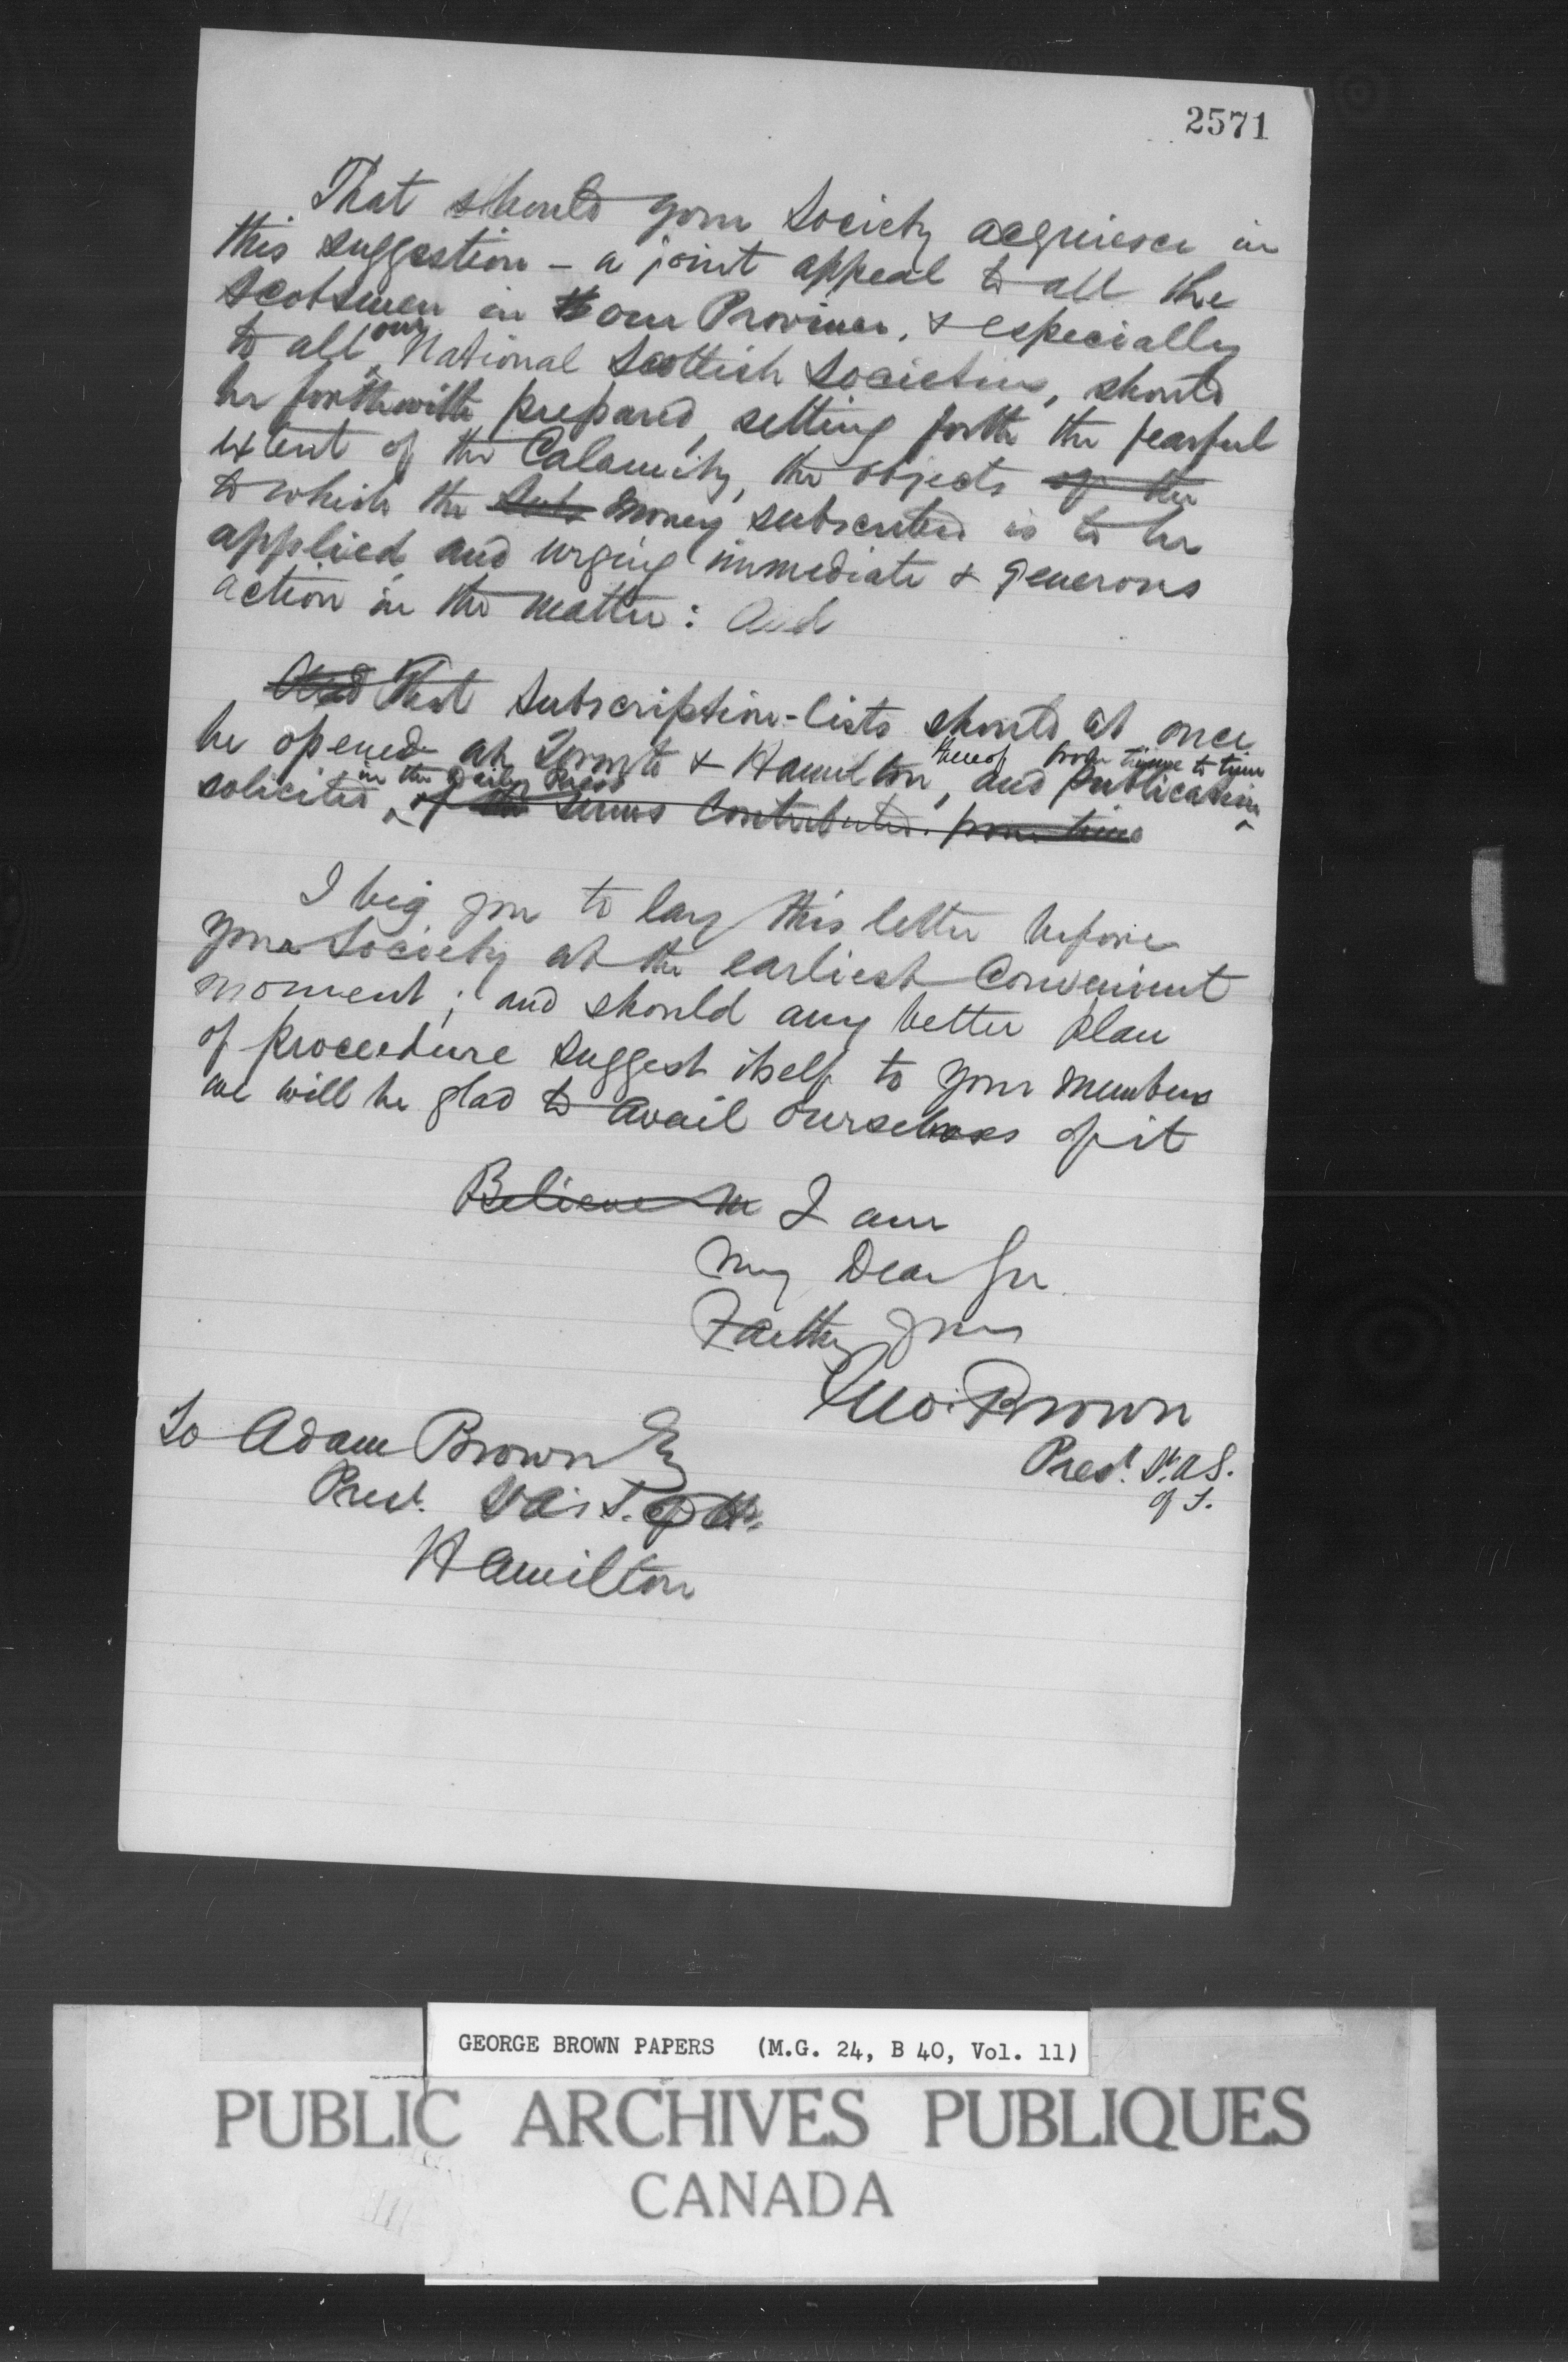 2571
That should your Society acquiesce in
this suggestion – a joint appeal to all the
Scotsmen in our Province, & especially
to all our National Scottish Societies, should
be forthwith prepared, setting forth the fearful
extent of the Calamity, the objects of the
to which the Subs money subscribed is to be
applied, and urging immediate & generous
action in the matter: And
And That Subscription-lists should at once
be opened at Toronto & Hamilton, and publication
thereof from time to time
in the Daily Press
solicited of the sums contributed. from time
I beg you to lay this letter before
your Society at the earliest Convenient
moment; and should any better plan
of proceedure suggest itself to your members
we will be glad to avail ourselves of it
Believe m I am
My Dear Sir
Faithy Yours
Geo: Brown
Prest. St. A S.
of T.
To Adam Brown Esq
Prest. St A's S. of H.
Hamilton
GEORGE BROWN PAPERS (M.G. 24, B 40, Vol. 11)
PUBLIC ARCHIVES PUBLIQUES
CANADA